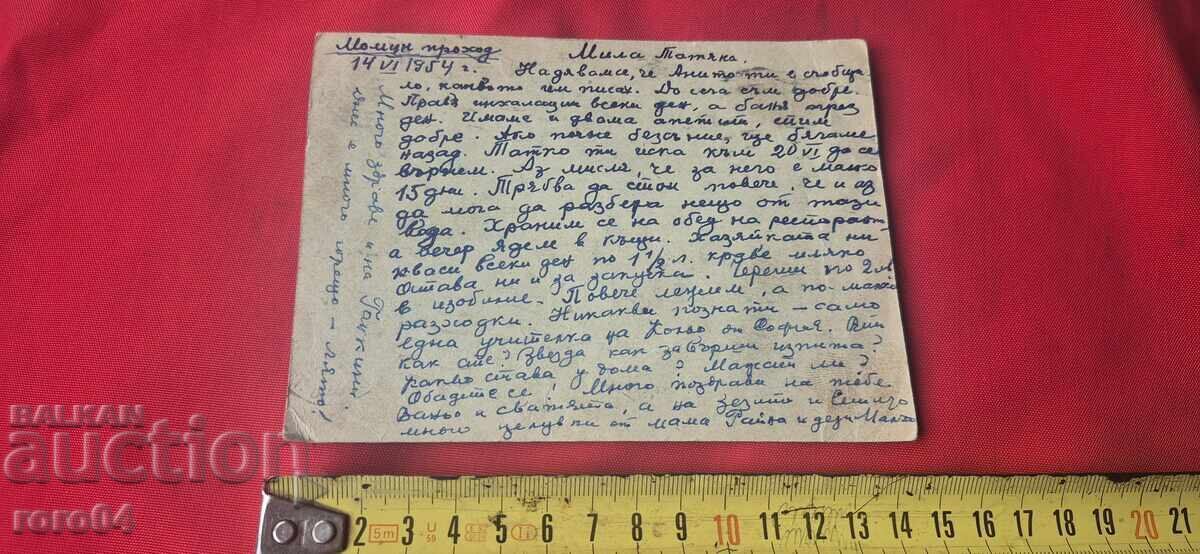 Момин проход
14 VI 1954 г.
Мила Татяна.
Надявам се, че Анито ти е съобщи-
ло, каквото съм писах. До сега съм добре.
Правя инхалации всеки ден, а баня през
ден. Имаме и двама апетит, спим
добре. Ако почне безсъние, ще бягаме
назад. Татко ти иска към 20 VI да се
върнем. Аз мисля, че за него е малко
15 дни. Трябва да стои повече, че и аз
да мога да разбера нещо от тази
вода. Храним се на обед на ресторант
а вечер ядем в къщи. Хазяйката ни
кваси всеки ден по 1 1/2 л. краве мляко
Остава ни и за закуска. Череши по 2 лв
в изобилие. Повече лежим, а по-малко
разходки. Никакви познати – само
една учителка на от София. Вий
как сте? Звезда как завърши изпита?
Какво става у дома? Мажат ли?
Обадете се! Много поздрави на тебе
Ваньо и сватята, а на Зезито и Емилчо
много целувки от мама Райна и дядо
Много здраве и на Ганкини
Днес е много горещо – лято!
BALKAN
auction
roro64
2 3 4 5 6 7 8 9 10 11 12 13 14 15 16 17 18 19 20 21
5m
U
59
II